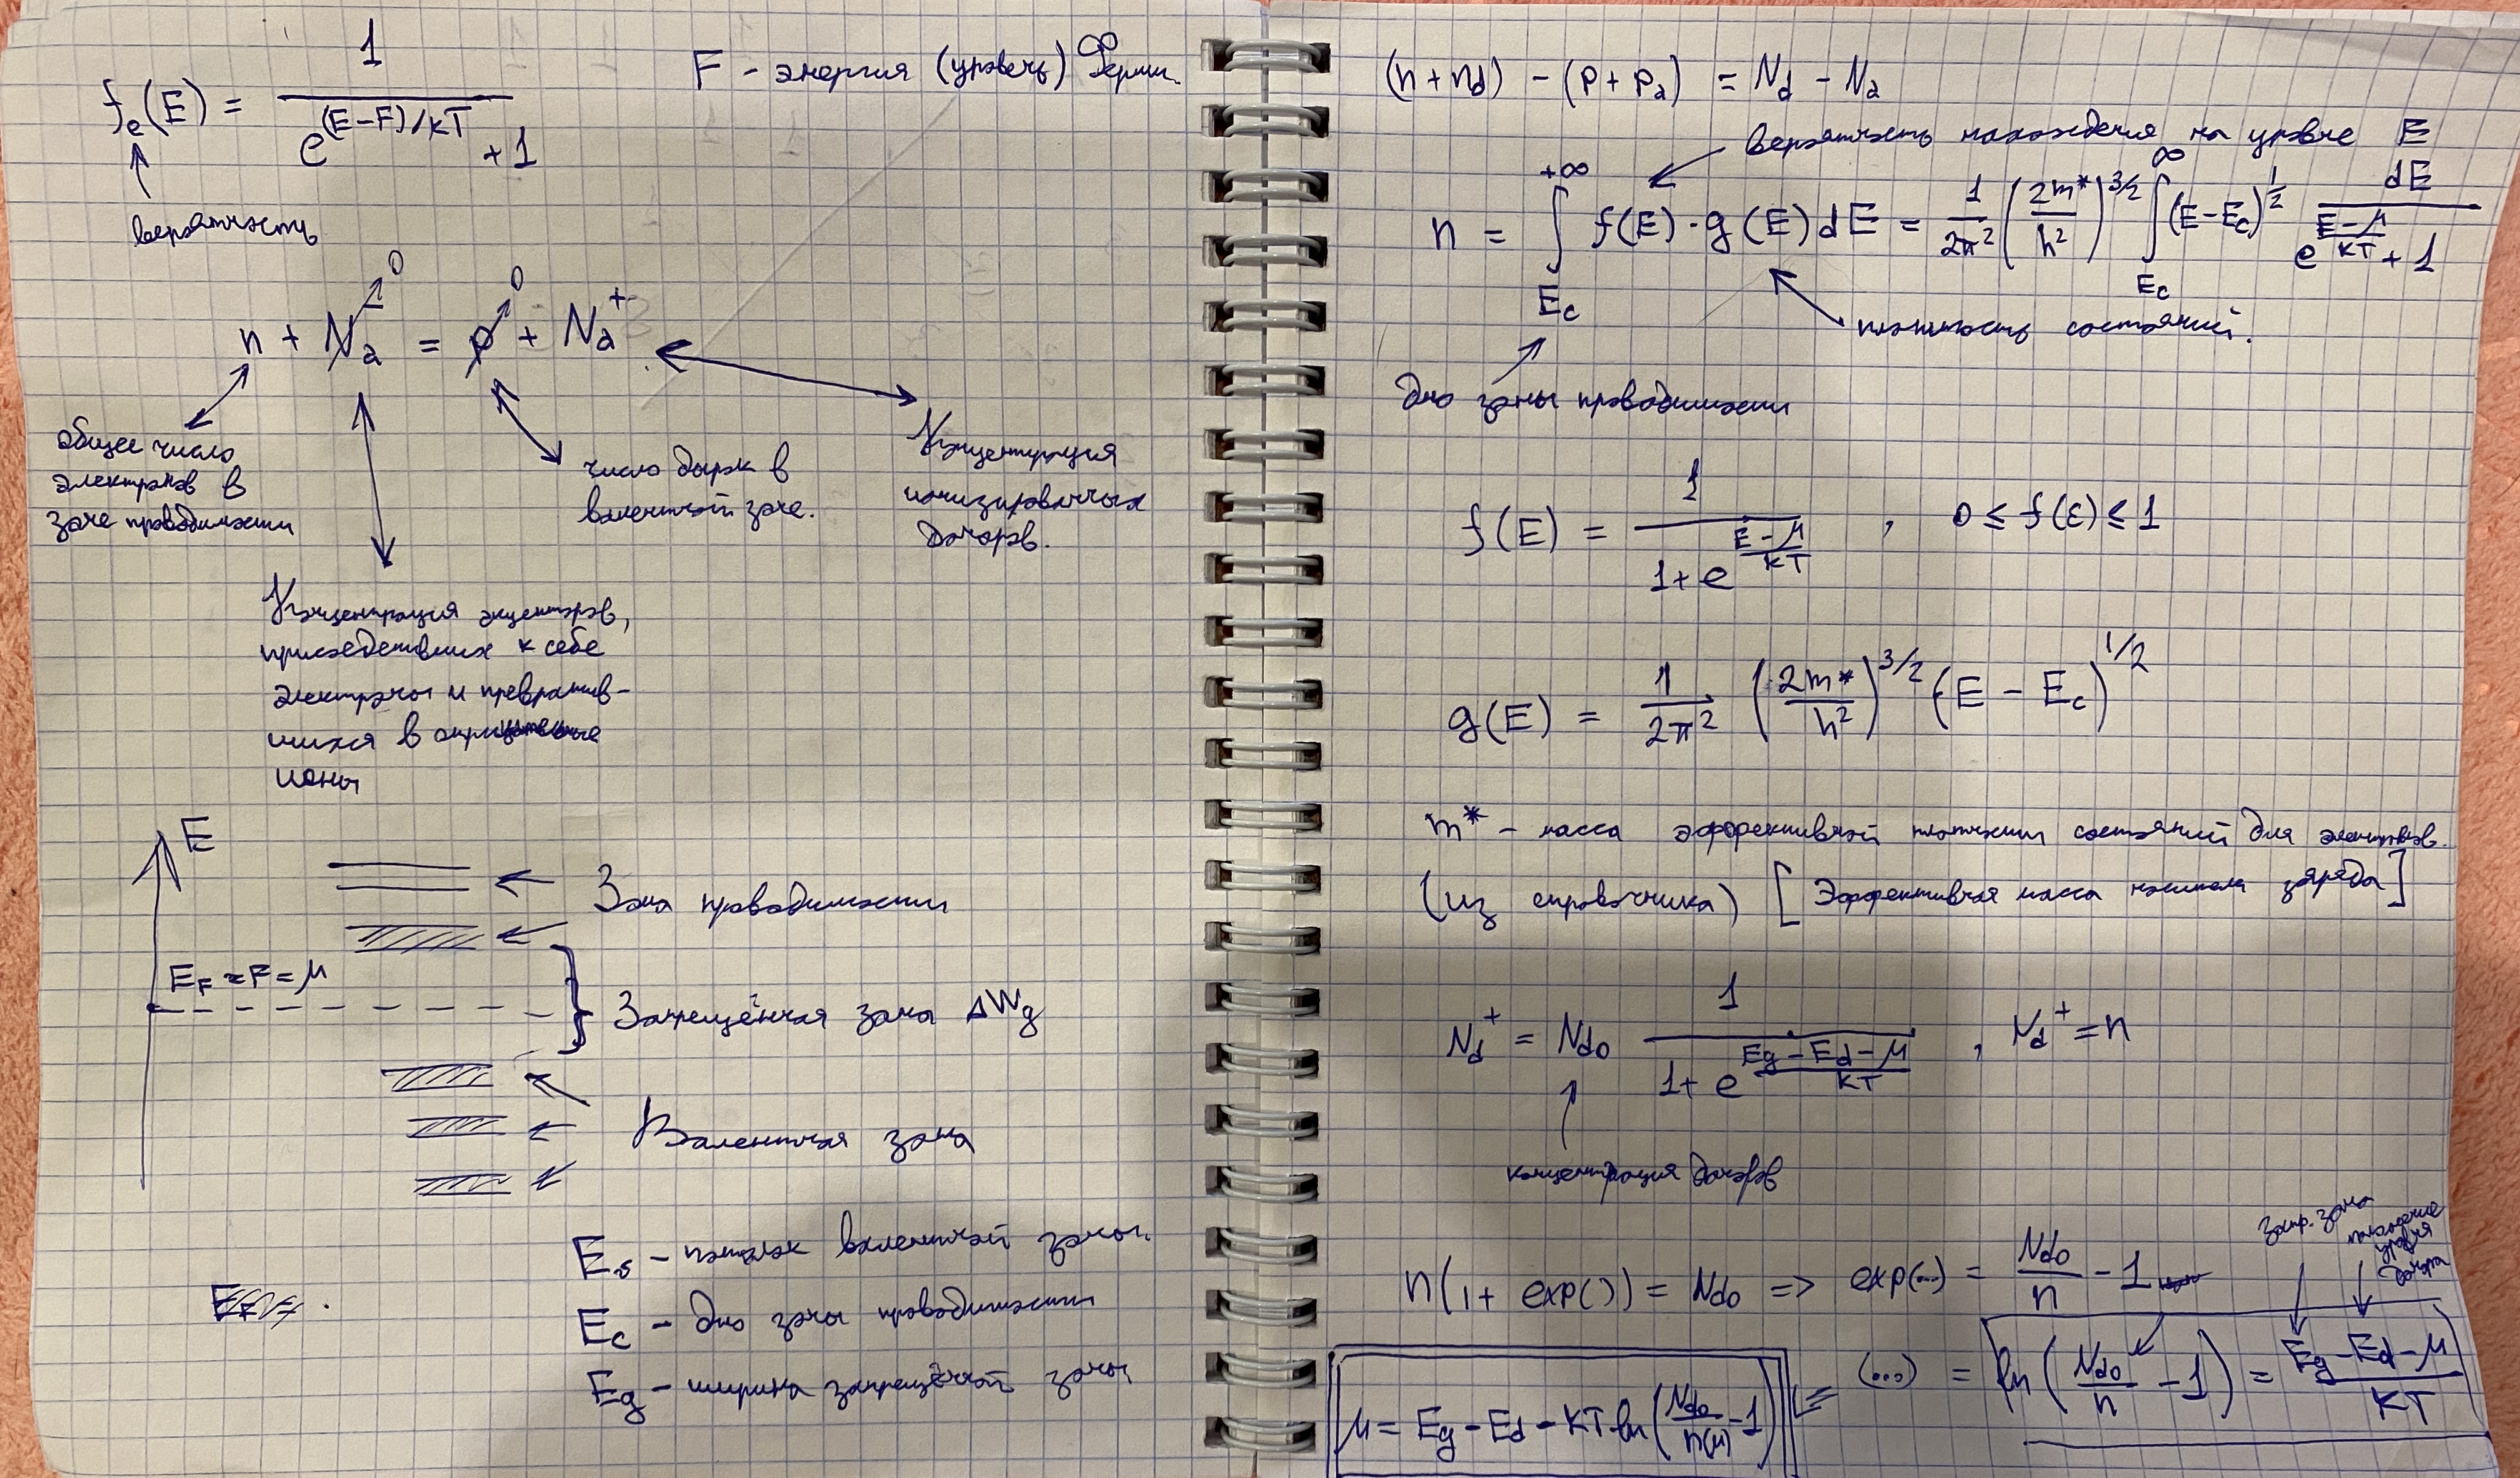 fₑ(E) = 1 / (e^((E−F)/kT) + 1)
F - энергия (уровень) Ферми.
вероятность
n + Nₐ↗0 = p↗0 + Nₐ⁺
общее число
электронов в
зоне проводимости
число дырок в
валентной зоне.
Концентрация
ионизированных
доноров.
Концентрация акцепторов,
присоединивших к себе
электроны и превратив-
шихся в отрицательные
ионы
E
Зона проводимости
E_F = F = μ
Запрещённая зона ΔWg
Валентная зона
Eᵥ - потолок валентной зоны.
E_c - дно зоны проводимости
Eg - ширина запрещённой зоны
(n + n_d) − (p + pₐ) = N_d − Nₐ
вероятность нахождения на уровне E
n = ∫_{E_c}^{+∞} f(E)·g(E)dE = 1/(2π²) (2m*/ħ²)^(3/2) ∫_{E_c}^{∞} (E−E_c)^(1/2) dE / (e^((E−μ)/kT) + 1)
плотность состояний.
Дно зоны проводимости
f(E) = 1 / (1 + e^((E−μ)/kT)) , 0 ≤ f(E) ≤ 1
g(E) = 1/(2π²) (2m*/ħ²)^(3/2) (E − E_c)^(1/2)
m* - масса эффективной плотности состояний для электронов.
(из справочника) [Эффективная масса носителя заряда]
N_d⁺ = N_d0 1 / (1 + e^((Eg − E_d − μ)/kT)) , N_d⁺ = n
концентрация доноров
запр. зона
положение
уровня
донора
n(1 + exp()) = N_d0 => exp(...) = N_d0/n − 1
(...) = ln(N_d0/n − 1) = (Eg − E_d − μ)/kT
μ = Eg − E_d − kT ln(N_d0/n(μ) − 1)